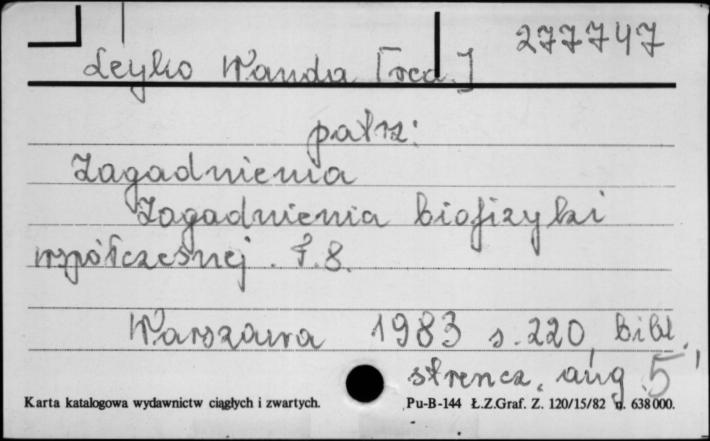 277747
Leyko Wanda [red.]
patrz:
Zagadnienia
Zagadnienia biofizyki
współczesnej. T.8.
Warszawa 1983 s.220, bibl.,
streszcz. ang. 5
Karta katalogowa wydawnictw ciągłych i zwartych. Pu-B-144 Ł.Z.Graf. Z. 120/15/82 n. 638000.